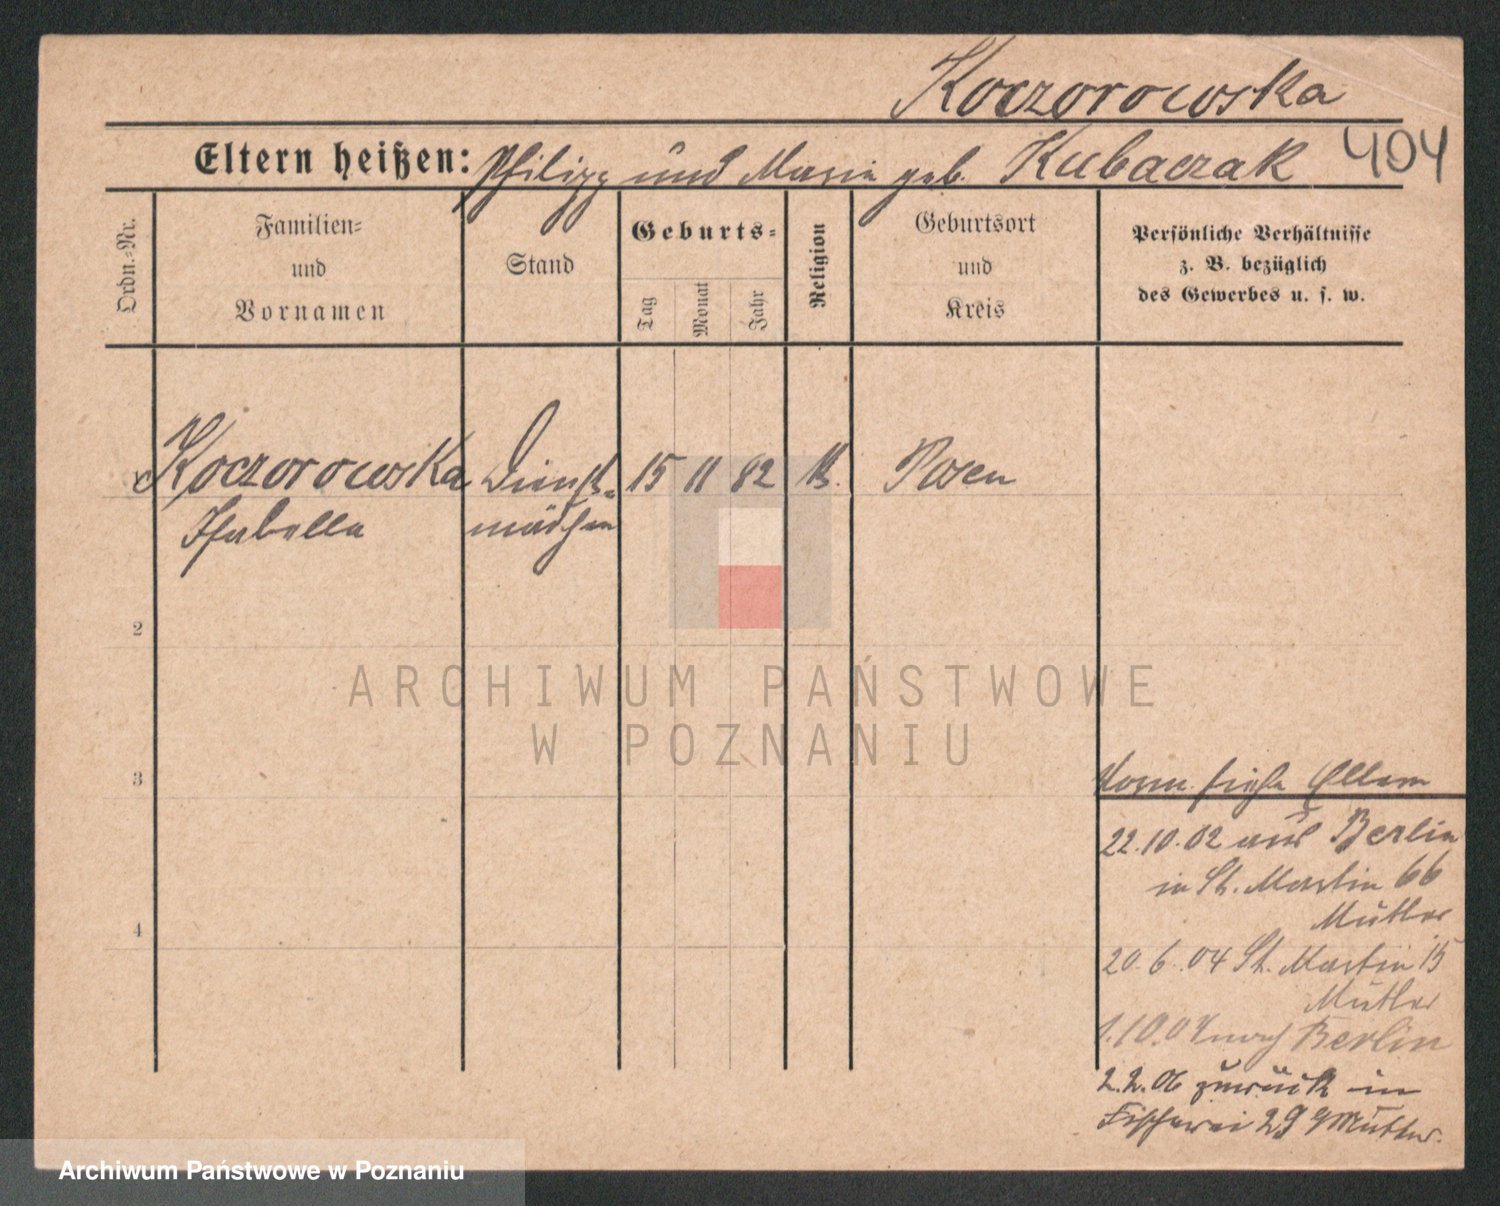 Koczorowska
404
Eltern heißen: Philipp und Maria geb. Kubaczak
Ordn.-Nr.
Familien-
und
Vornamen
Stand
Geburts-
Tag
Monat
Jahr
Religion
Geburtsort
und
Kreis
Persönliche Verhältnisse
z. B. bezüglich
des Gewerbes u. s. w.
Koczorowska Dienst- 15 11 82 k. Posen
Isabella mädchen
2
3
4
ARCHIWUM PAŃSTWOWE
W POZNANIU
Vorm. siehe Eltern
22.10.02 aus Berlin
in St. Martin 66
Mutter
20.6.04 St. Martin 15
Mutter
1.10.04 nach Berlin
2.2.06 zurück in
Fischerei 29 Mutter.
Archiwum Państwowe w Poznaniu